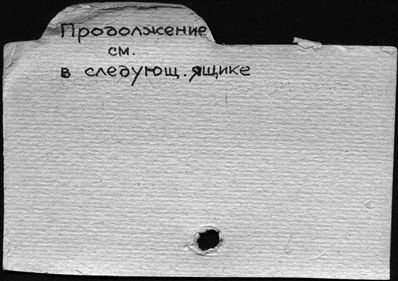 Продолжение
см.
в следующ. ящике